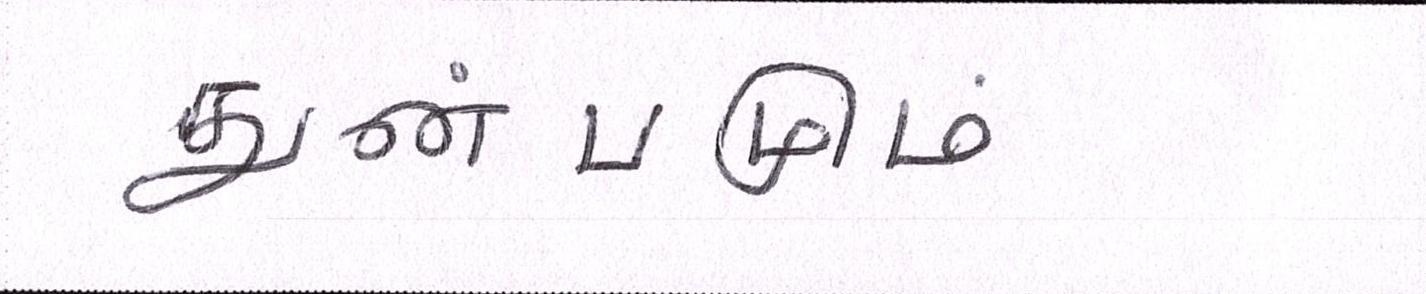 துன்பமும்